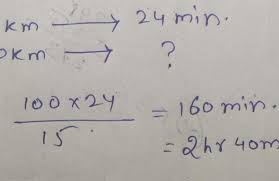 km → 24 min.
0km → ?
100 x 24 / 15 = 160 min.
= 2hr 40m